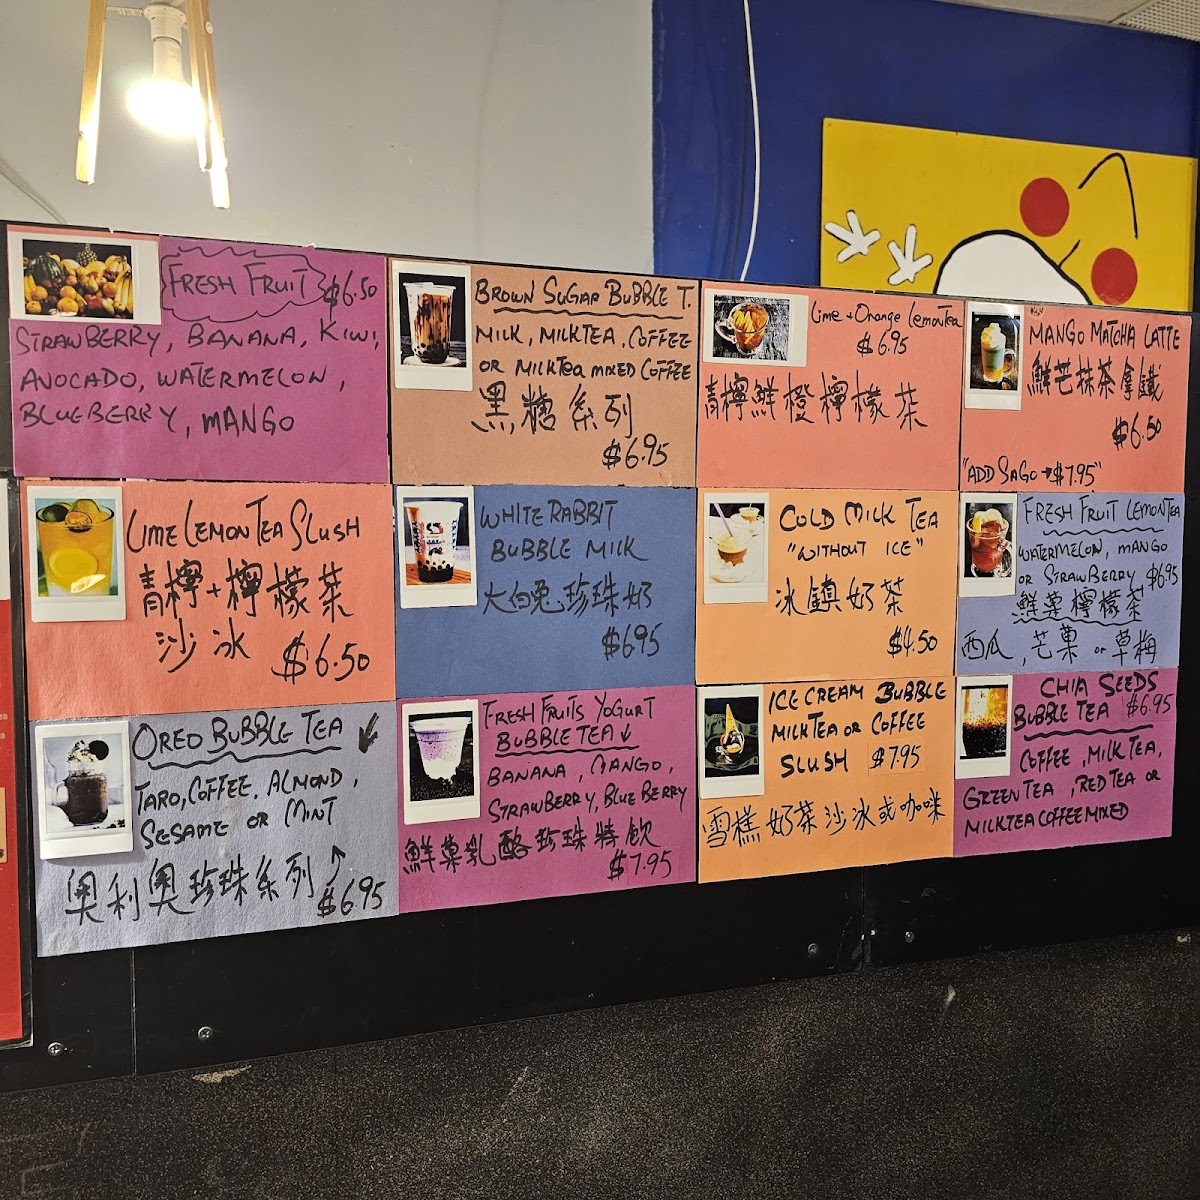 FRESH FRUIT $6.50
STRAWBERRY, BANANA, KIWI,
AVOCADO, WATERMELON,
BLUEBERRY, MANGO
BROWN SUGAR BUBBLE T.
MILK, MILKTEA, COFFEE
OR MILKTEA MIXED COFFEE
黑糖系列
$6.95
Lime + Orange Lemontea
$6.95
青檸鮮橙檸檬茶
MANGO MATCHA LATTE
鮮芒抹茶拿鐵
$6.50
"ADD SAGO → $7.95"
LIME LEMON TEA SLUSH
青檸+檸檬茶
沙冰 $6.50
WHITE RABBIT
BUBBLE MILK
大白兔珍珠奶
$6.95
COLD MILK TEA
"WITHOUT ICE"
冰鎮奶茶
$4.50
FRESH FRUIT LEMONTEA
WATERMELON, MANGO
OR STRAWBERRY $6.95
鮮菓檸檬茶
西瓜,芒菓 or 草梅
OREO BUBBLE TEA ↙
TARO, COFFEE, ALMOND,
SESAME OR MINT
奧利奧珍珠系列
$6.95
FRESH FRUITS YOGURT
BUBBLE TEA ↓
BANANA, MANGO,
STRAWBERRY, BLUEBERRY
鮮菓乳酪珍珠特飲
$7.95
ICE CREAM BUBBLE
MILKTEA OR COFFEE
SLUSH $7.95
雪糕奶茶沙冰或咖啡
CHIA SEEDS
BUBBLE TEA $6.95
COFFEE, MILK TEA,
GREEN TEA, RED TEA OR
MILKTEA COFFEE MIXED